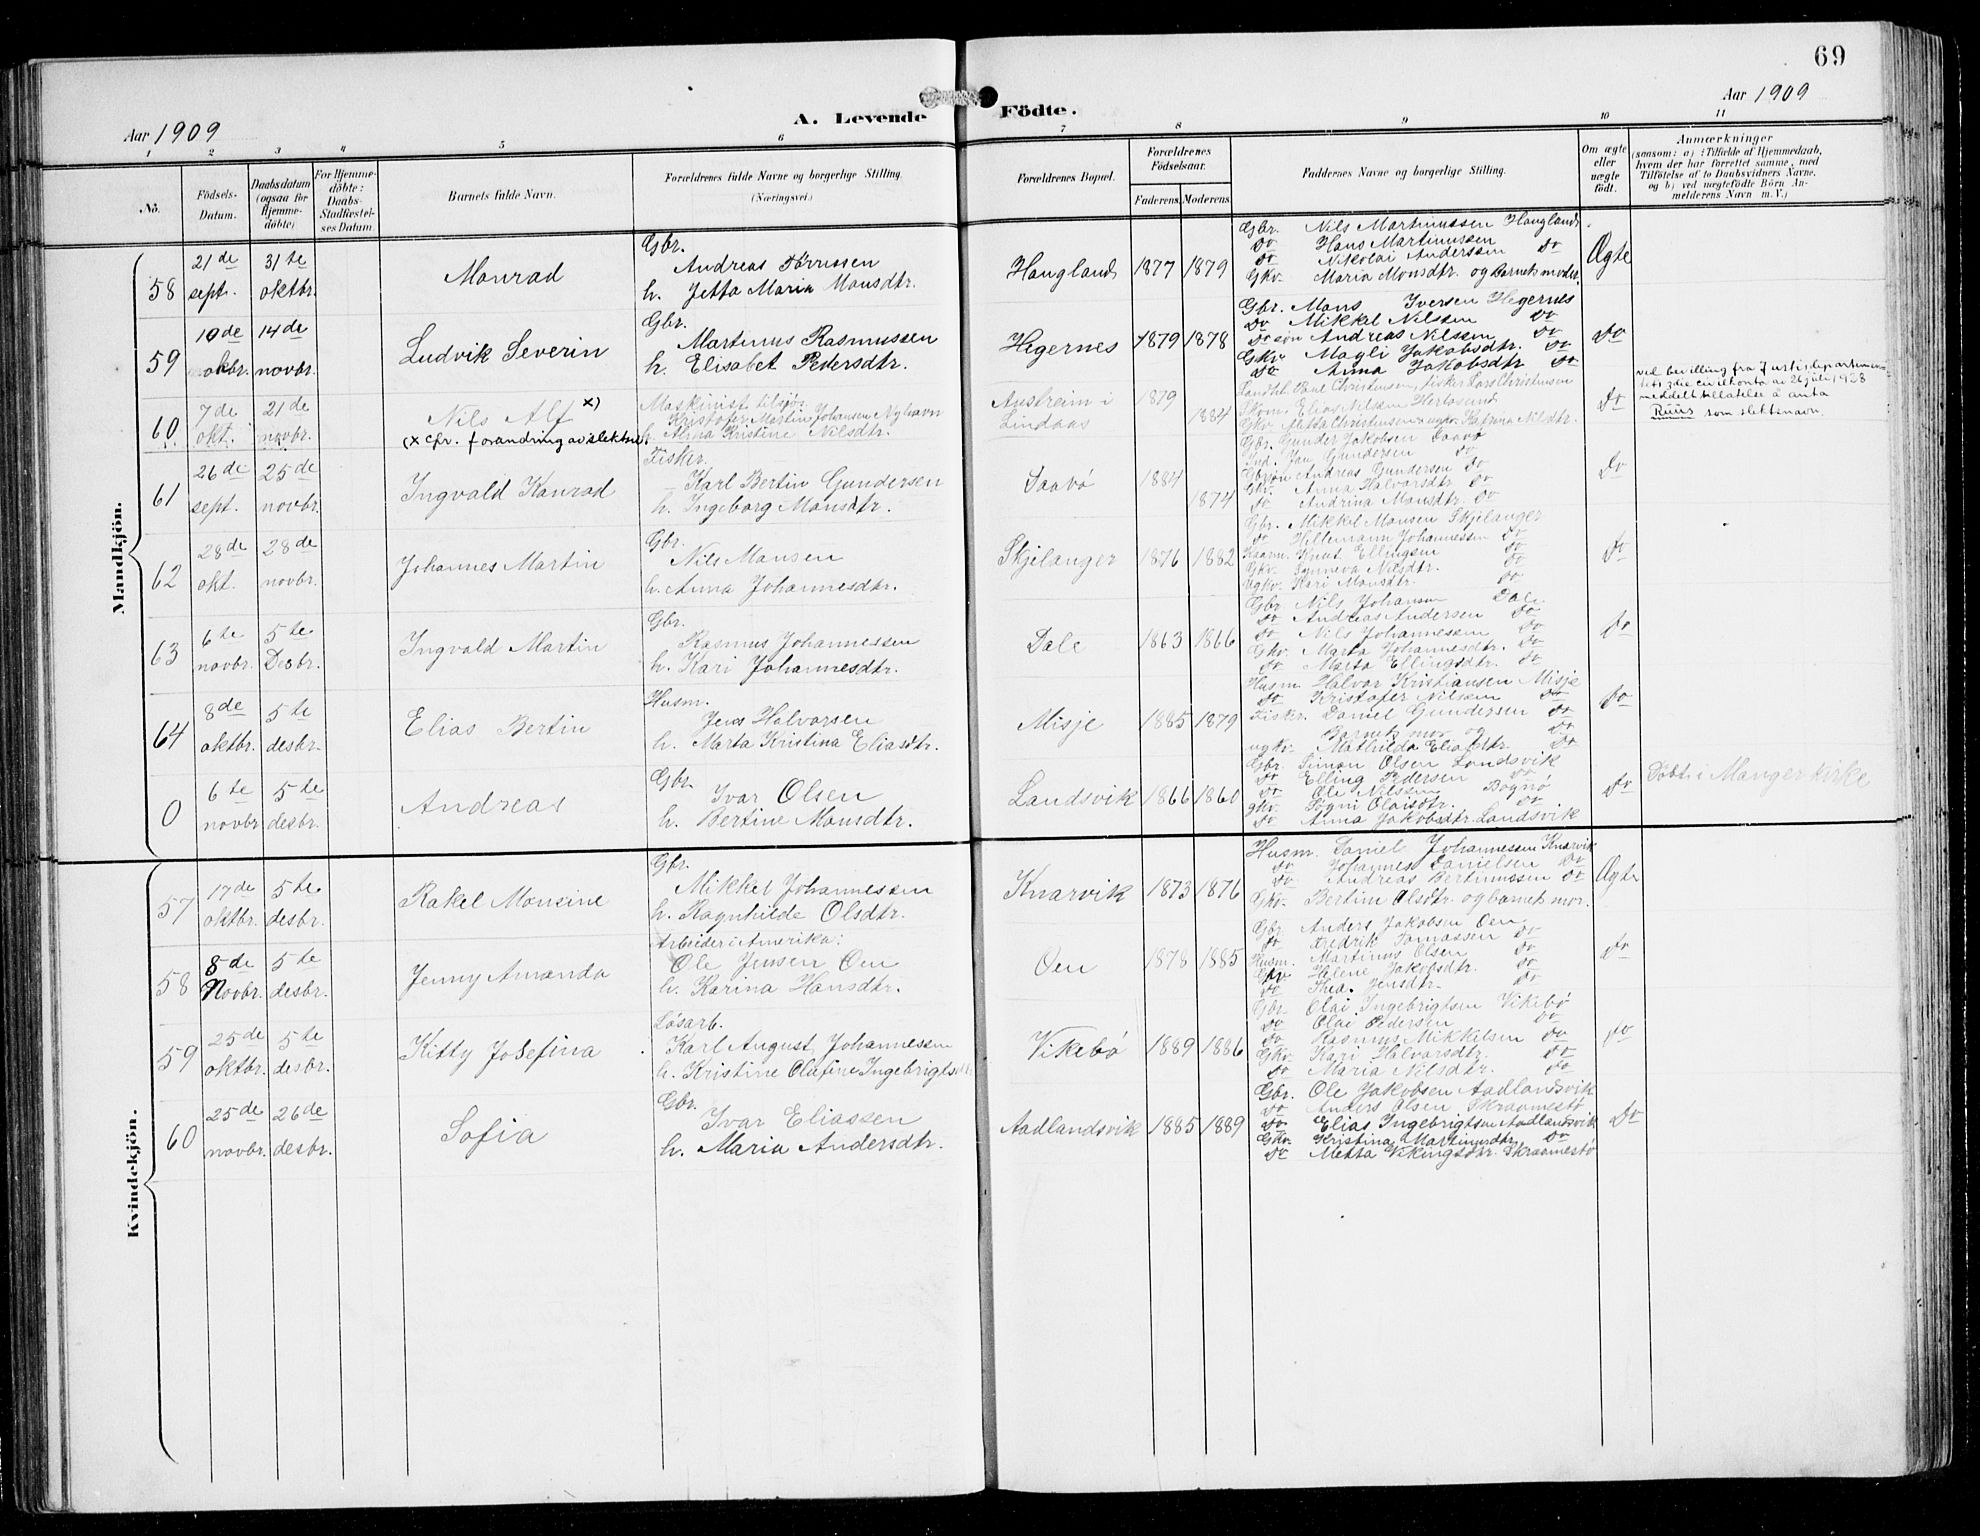 69
Aar 1909
A. Levende
Födte.
Aar 1909
1 2 3 4 5 6 7 8 9 10 11
No.
Födsels-Datum.
Daabsdatum (ogsaa for Hjemme-döbte)
For Hjemme-döbte: Daabs-Stadfæstel-ses Datum.
Barnets fulde Navn.
Forældrenes fulde Navne og borgerlige Stilling.
(Næringsvei.)
Forældrenes Bopæl.
Forældrenes Födselsaar.
Faderens. Moderens.
Faddernes Navne og borgerlige Stilling.
Om ægte eller uægte födt.
Anmærkninger
(saasom: a) i Tilfælde af Hjemmedaab, hvem der har forrettet samme, med Tilföielse af to Daabsvidners Navne, og b) ved uægtefödte Börn Anmelderens Navn m. V.)
Mandkjön.
58
21de sept.
31te oktbr.
Monrad
Gbr.
Andreas Törrissen
h. Jetta Maria Monsdtr.
Haugland
1877 1879
Gbr. Nils Martinussen Haugland
Do Hans Martinussen Do
Do Nikolai Anderssen
Gkv. Maria Monsdtr. og Barnets moder.
Ægte
59
10de oktbr.
14de novbr.
Ludvik Severin
Gbr.
Martinus Rasmussen
h. Elisabet Pedersdtr.
Hegernes
1879 1878
Gbr. Mons Iversen Hegernes
Do Mikkel Nilsen Do
Do søn Andreas Nilssen Do
Gkv. Magli Jakobsdtr. Do
Do Anna Jakobsdtr Do
Do
60.
7de okt.
21de novbr.
Nils Alf x)
(x cfr. forandring av slektsn.
Maskinist tilsjøs
Kristofer Martin Johansen Nyhavn
h. Alma Kristine Nilsdtr.
Austreim i Lindaas
1879 1884
Christensen, fisker Lars Christensen
Elias Nilsen Hertøsund
Gkv. Metta Christensen ugkv. Katrina Nilsdtr.
Do
ved bevilling fra Justisdepartemen-
tets 3die civilkontor av 26 juli 1928
meddelt tillatelse å anta
Ruus som slektsnavn.
61
26de sept.
25de novbr.
Ingvald Konrad
Fisker.
Karl Bertin Gundersen
h. Ingeborg Monsdtr.
Saavø
1884 1874
Gbr. Gunder Jakobsen Saavø
Ind. Jan Gundersen Do
Gbrsøn Andreas Gundersen Do
Gkv. Anna Halvorsdtr Do
Do Andrina Monsdtr. Do
Do
62
28de okt.
28de novbr.
Johannes Martin
Gbr.
Nils Monsen
h. Anna Johannesdtr.
Skjelanger
1876 1882
Gbr. Mikkel Monsen Skjelanger
Do Willemann Johannessen Do
Kaarm. Knut Ellingsen Do
Gkv. Synneva Nilsdtr. Do
Ugkv. Kari Monsdtr. Do
Do
63
6te novbr.
5te Desbr.
Ingvald Martin
Gbr.
Rasmus Johannessen
h. Kari Johannesdtr.
Dale
1863 1866
Gbr. Nils Johansen Dale.
Do Andreas Andersen Do
Do Nils Johannessen Do
Gkv. Marta Johannesdtr. Do
Do Marta Ellingsdtr. Do
Do
64
8de oktbr.
5te desbr.
Elias Bertin
Husm.
Jens Halvorsen
h. Marta Kristina Eliasdtr.
Misje
1885 1879
Husm. Halvor Kristiansen Misje
Do Kristofer Nilsen Do
Fisker. Daniel Gundersen Do
Barnets mor og Do
ugkv. Mathilda Eliasdtr Do
Do
0
6te novbr
5te desbr.
Andreas
Gbr.
Ivar Olsen
h. Bertine Monsdtr.
Landsvik
1866 1860
Gbr. Simon Olsen Landsvik
Do Elling Pedersen Do
Do Ole Nilssen Bognø
gkv. Sögni Olaisdtr. Do
Do Anna Jakobsdtr. Landsvik
Do
Døbt i Manger kirke
Kvindekjön.
57
17de oktbr.
5te desbr.
Rakel Monsine
Gbr.
Mikkel Johannessen
h. Ragnhilde Olsdtr.
Knarvik
1873 1876
Husm. Daniel Johannessen Knarvik
Do Johannes Danielsen Do
Do Andreas Bertinussen Do
Gkv. Bertine Olsdtr. og barnets mor.
Ægte
58
8de Novbr.
5te desbr.
Jenny Amanda
Arbeider i Amerika:
Ole Jensen Oen
h. Karina Hansdtr.
Oen
1878 1885
Gbr. Anders Jakobsen Oen
Do Fredrik Tomassen Do
Husm. Martinus Olsen Do
Gkv Helene Jakobsdtr. Do
Do Thea Jensdtr. Do
Do
59
25de oktbr.
5te desbr.
Kitty Josefina
Løsarb.
Karl August Johannessen
h. Kristine Olafine Ingebrigtsdtr.
Vikebø
1889 1886
Gbr. Olai Ingebrigtsen Vikebø
Do Olai Pedersen Do
Do Rasmus Mikkelsen Do
Gkv. Kari Halvorsdtr. Do
Do Maria Nilsdtr. Do
Do
60
25de novbr.
26de desbr.
Sofia
Gbr.
Ivar Eliassen
h. Maria Andersdtr.
Aadlandsvik
1885 1889
Gbr. Ole Jakobsen Aadlandsvik
Do Anders Olsen Skraamestø
Do Elias Ingebrigtsen Aadlandsvik
Gkv. Kristina Martinusdtr. Do
Do Metta Vikingsdtr. Skraamestø
Do